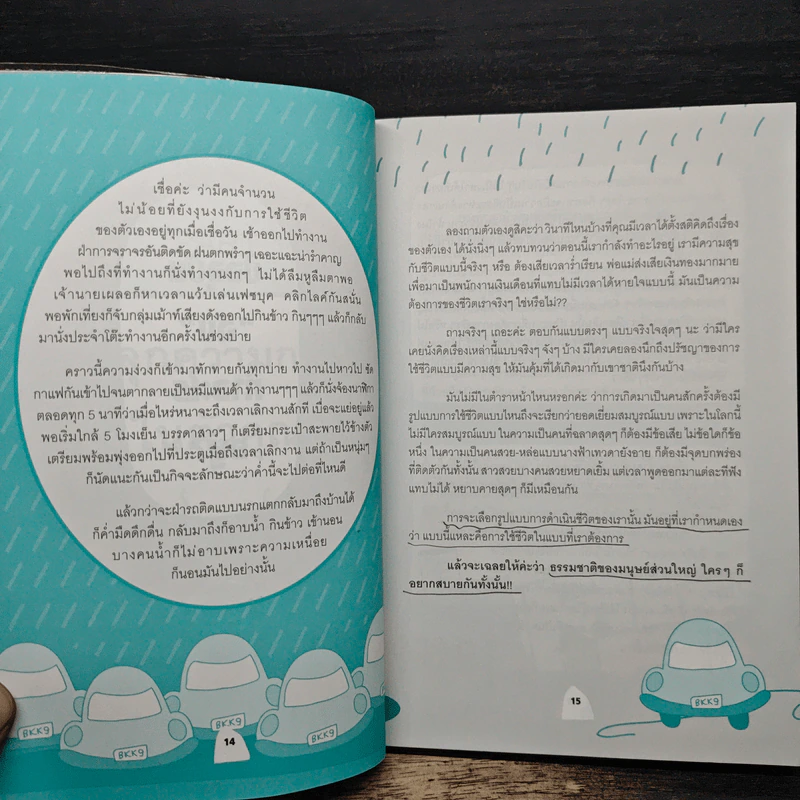 เชื่อค่ะ ว่ามีคนจำนวน
ไม่น้อยที่ยังงุนงงกับการใช้ชีวิต
ของตัวเองอยู่ทุกเมื่อเชื่อวัน เช้าออกไปทำงาน
ฝ่าการจราจรอันติดขัด ฝนตกพรำๆ เฉอะแฉะน่ารำคาญ
พอไปถึงที่ทำงานก็นั่งทำงานงกๆ ไม่ได้ลืมหูลืมตาพอ
เจ้านายเผลอก็หาเวลาแว้บเล่นเฟซบุค คลิกไลค์กันสนั่น
พอพักเที่ยงก็จับกลุ่มเม้าท์เสียงดังออกไปกินข้าว กินๆๆๆ แล้วก็กลับ
มานั่งประจำโต๊ะทำงานอีกครั้งในช่วงบ่าย
คราวนี้ความง่วงก็เข้ามาทักทายกันทุกบ่าย ทำงานไปหาวไป ซัด
กาแฟกันเข้าไปจนตากลายเป็นหมีแพนด้า ทำงานๆๆๆ แล้วก็นั่งจ้องนาฬิกา
ตลอดทุก 5 นาทีว่าเมื่อไหร่หนาจะถึงเวลาเลิกงานสักที เบื่อจะแย่อยู่แล้ว
พอเริ่มใกล้ 5 โมงเย็น บรรดาสาวๆ ก็เตรียมกระเป๋าสะพายไว้ข้างตัว
เตรียมพร้อมพุ่งออกไปที่ประตูเมื่อถึงเวลาเลิกงาน แต่ถ้าเป็นหนุ่มๆ
ก็นัดแนะกันเป็นกิจจะลักษณะว่าค่ำนี้จะไปต่อที่ไหนดี
แล้วกว่าจะฝ่ารถติดแบบนรกแตกกลับมาถึงบ้านได้
ก็ค่ำมืดดึกดื่น กลับมาถึงก็อาบน้ำ กินข้าว เข้านอน
บางคนน้ำก็ไม่อาบเพราะความเหนื่อย
ก็นอนมันไปอย่างนั้น
BKK9
BKK9
BKK9
BKK9
14
ลองถามตัวเองดูสิคะว่า วินาทีไหนบ้างที่คุณมีเวลาได้ตั้งสติคิดถึงเรื่อง
ของตัวเอง ได้นั่งนิ่งๆ แล้วทบทวนว่าตอนนี้เรากำลังทำอะไรอยู่ เรามีความสุข
กับชีวิตแบบนี้จริงๆ หรือ ต้องเสียเวลาร่ำเรียน พ่อแม่ส่งเสียเงินทองมากมาย
เพื่อมาเป็นพนักงานเงินเดือนที่แทบไม่มีเวลาได้หายใจแบบนี้ มันเป็นความ
ต้องการของชีวิตเราจริงๆ ใช่หรือไม่??
ถามจริงๆ เถอะค่ะ ตอบกันแบบตรงๆ แบบจริงใจสุดๆ นะ ว่ามีใคร
เคยนั่งคิดเรื่องเหล่านี้แบบจริงๆ จังๆ บ้าง มีใครเคยลองนึกถึงปรัชญาของการ
ใช้ชีวิตแบบมีความสุข ให้มันคุ้มที่ได้เกิดมากับเขาชาตินึงกันบ้าง
มันไม่มีในตำราหน้าไหนหรอกค่ะ ว่าการเกิดมาเป็นคนสักครั้งต้องมี
รูปแบบการใช้ชีวิตแบบไหนถึงจะเรียกว่ายอดเยี่ยมสมบูรณ์แบบ เพราะในโลกนี้
ไม่มีใครสมบูรณ์แบบ ในความเป็นคนที่ฉลาดสุดๆ ก็ต้องมีข้อเสีย ไม่ข้อใดก็ข้อ
หนึ่ง ในความเป็นคนสวย-หล่อแบบนางฟ้าเทวดายังอาย ก็ต้องมีจุดบกพร่อง
ที่ติดตัวกันทั้งนั้น สาวสวยบางคนสวยหยาดเยิ้ม แต่เวลาพูดออกมาแต่ละทีฟัง
แทบไม่ได้ หยาบคายสุดๆ ก็มีเหมือนกัน
การจะเลือกรูปแบบการดำเนินชีวิตของเรานั้น มันอยู่ที่เรากำหนดเอง
ว่า แบบนี้แหละคือการใช้ชีวิตในแบบที่เราต้องการ
แล้วจะเฉลยให้ค่ะว่า ธรรมชาติของมนุษย์ส่วนใหญ่ ใครๆ ก็
อยากสบายกันทั้งนั้น!!
BKK9
15